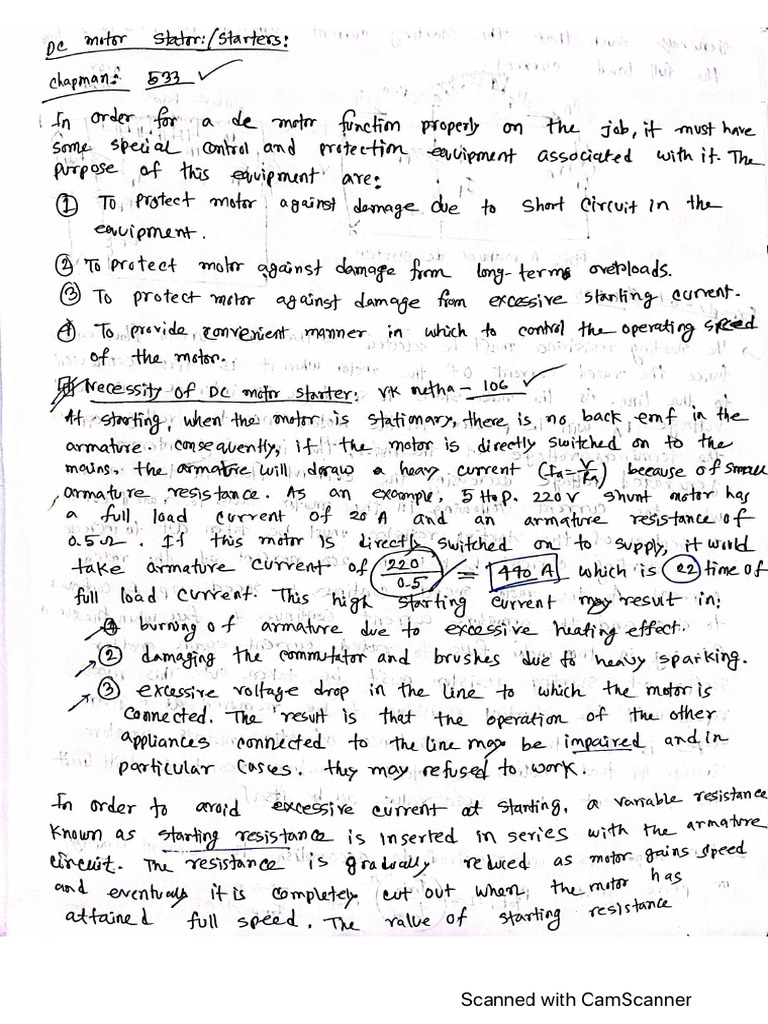 DC motor Stator:/Starters:
Chapman:- 533 ✓
In order for a dc motor function properly on the job, it must have
some special control and protection equipment associated with it. The
purpose of this equipment are:
① To protect motor against damage due to short circuit in the
equipment.
② To protect motor against damage from long-terms overloads.
③ To protect motor against damage from excessive starting current.
④ To provide convenient manner in which to control the operating speed
of the motor.
Necessity of DC motor starter: VK metha - 106 ✓
At starting, when the motor is stationary, there is no back emf in the
armature. consequently, if the motor is directly switched on to the
mains, the armature will draw a heavy current (Ia = V/Ra) because of small
armature resistance. As an example, 5 H.P. 220 V shunt motor has
a full load current of 20 A and an armature resistance of
0.5Ω. If this motor is directly switched on to supply, it would
take armature current of 220/0.5 = 440 A which is 22 time of
full load current. This high starting current may result in:
① burning of armature due to excessive heating effect.
② damaging the commutator and brushes due to heavy sparking.
③ excessive voltage drop in the line to which the motor is
connected. The result is that the operation of the other
appliances connected to the line may be impaired and in
particular cases. they may refused to work.
In order to avoid excessive current at starting, a variable resistance
known as starting resistance is inserted in series with the armature
circuit. The resistance is gradually reduced as motor gains speed
and eventually it is completely cut out when the motor has
attained full speed. The value of starting resistance
Scanned with CamScanner